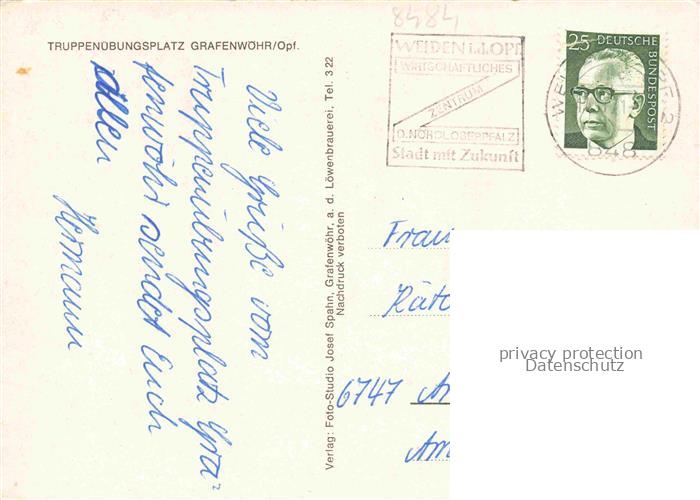 TRUPPENÜBUNGSPLATZ GRAFENWÖHR/Opf.
Viele Grüße vom
Truppenübungsplatz Gra-
fenwöhr sendet Euch
allen
Hermann
Verlag: Foto-Studio Josef Spahn, Grafenwöhr, a. d. Löwenbrauerei, Tel. 3 22
Nachdruck verboten
8484
WEIDEN I.D.OPF
WIRTSCHAFTLICHES
ZENTRUM
D.NÖRDL.OBERPFALZ
Stadt mit Zukunft
25 DEUTSCHE
BUNDESPOST
848
Frau
6747
privacy protection
Datenschutz